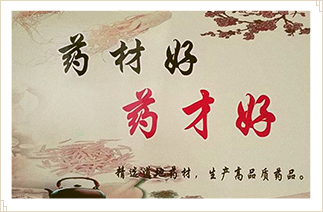 药材好
药才好
精选道地药材，生产高品质药品。